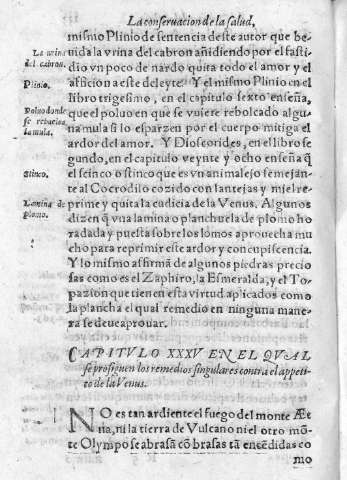 La conseruacion de la salud,
mismo Plinio de sentencia deste autor que be-
uida la vrina del cabron añidiendo por el fasti
dio vn poco de nardo quita todo el amor y el
afficion a este deleyte. Y el mismo Plinio en el
libro trigesimo, en el capitulo sexto enseña,
que el poluo en que se vuiere rebolcado algu-
na mula si lo esparzen por el cuerpo mitiga el
ardor del amor. Y Dioscorides, en el libro se
gundo, en el capitulo veynte y ocho enseña q̃
el scinco o stinco que es vn animalejo semejan-
te al Cocrodilo cozido con lantejas y miel re-
prime y quita la cudicia de la Venus. Algunos
dizen q̃ vna lamina o planchuela de plomo ho
radada y puesta sobre los lomos aprouecha mu
cho para reprimir este ardor y concupiscencia.
Y lo mismo affirmã de algunos piedras precio
sas como es el Zaphiro, la Esmeralda, y el To-
pazion que tienen esta virtud aplicados como
la plancha el qual remedio en ninguna mane-
ra se deue aprouar.
La vrina
del cabron.
Plinio.
Poluo donde
se rebuelca
la mula.
Stinco.
Lamina de
plomo.
CAPITVLO XXXV EN EL QVAL
se prosiguen los remedios singulares contra el appeti
to de la Venus.
NO es tan ardiente el fuego del monte Æt
na, ni la tierra de Vulcano ni el otro mõ-
te Olympo se abrasã cõ brasas tã encẽdidas co
mo